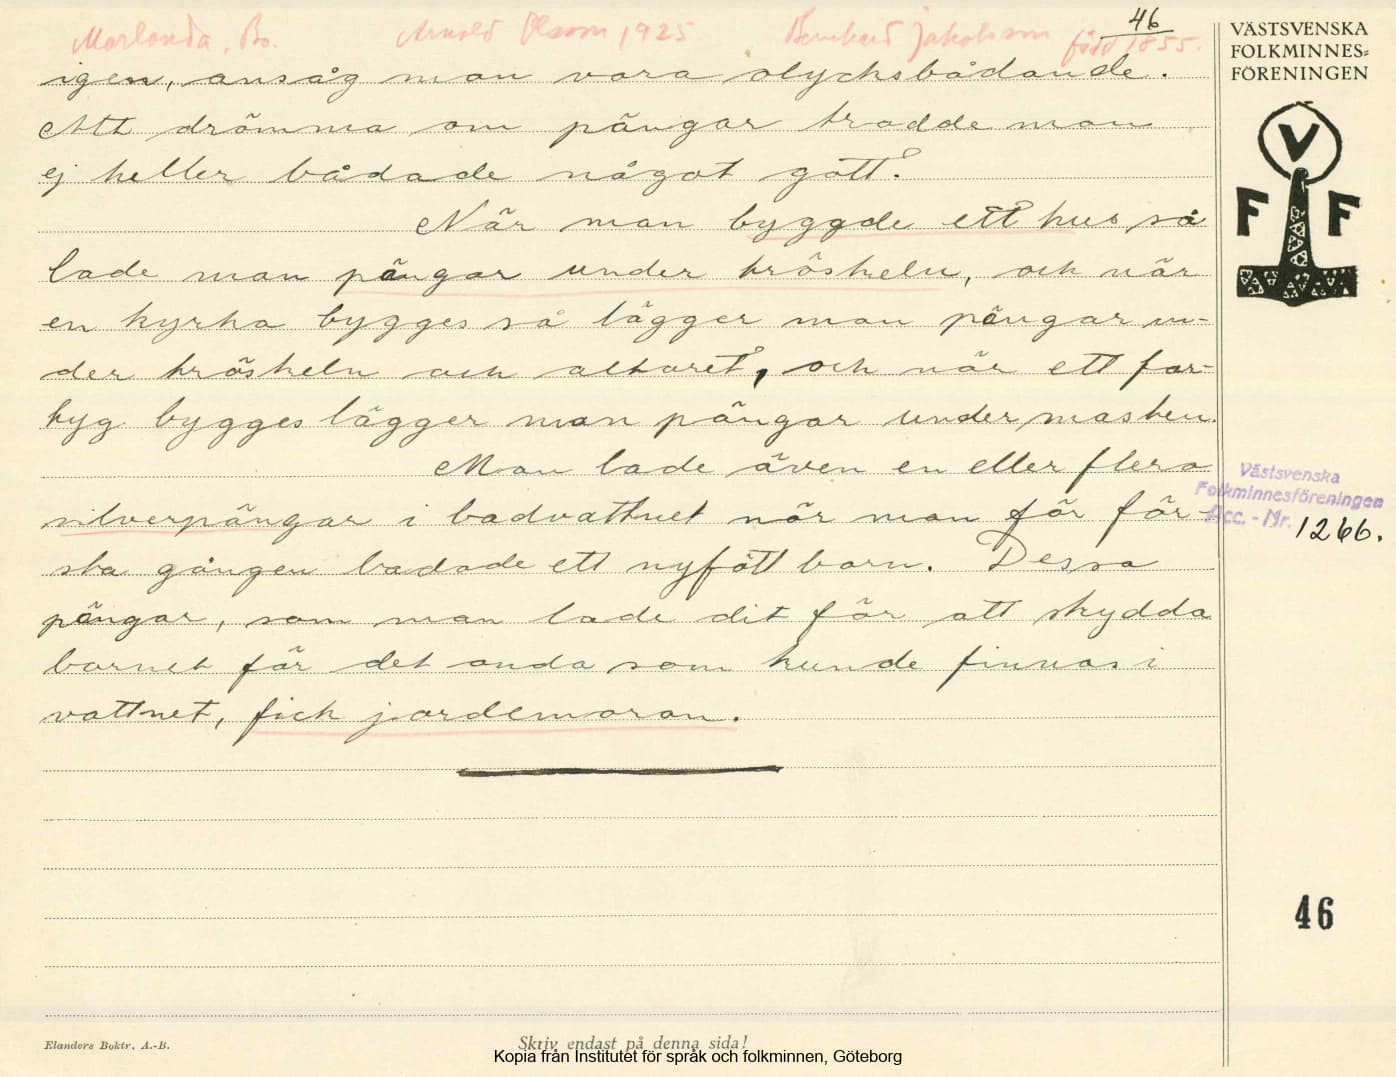 46
Morlanda, Bo. Arnold Olsson 1925 Bernhard Jakobsson född 1855.
igen, ansåg man vara olycksbådande.
Att drömma om pängar trodde man
ej heller bådade något gott.
När man byggde ett hus så
lade man pängar under tröskeln, och när
en kyrka bygges så lägger man pängar un-
der tröskeln och altaret, och när ett far-
tyg bygges lägger man pängar under masten.
Man lade även en eller flera
silverpängar i badvattnet när man för för-
sta gången badade ett nyfött barn. Dessa
pängar, som man lade dit för att skydda
barnet för det onda som kunde finnas i
vattnet, fick jordemoran.
VÄSTSVENSKA
FOLKMINNES=
FÖRENINGEN
V
F F
Västsvenska
Folkminnesföreningen
Acc. - Nr. 1266.
46
Elanders Boktr. A.-B.
Skriv endast på denna sida!
Kopia från Institutet för språk och folkminnen, Göteborg